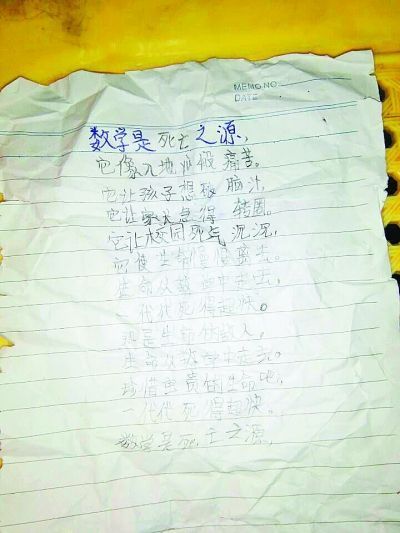 MEMO NO.
DATE
数学是死亡之源，
它像入地狱般痛苦。
它让孩子想破脑汁，
它让家长急得转圈。
它让校园死气沉沉，
它使生命慢慢离去。
生命从数学中走去，
一代代死得超快。
是生命
生命从数学中走去。
珍惜宝贵的生命吧，
一代代死得超快。
数学是死亡之源，